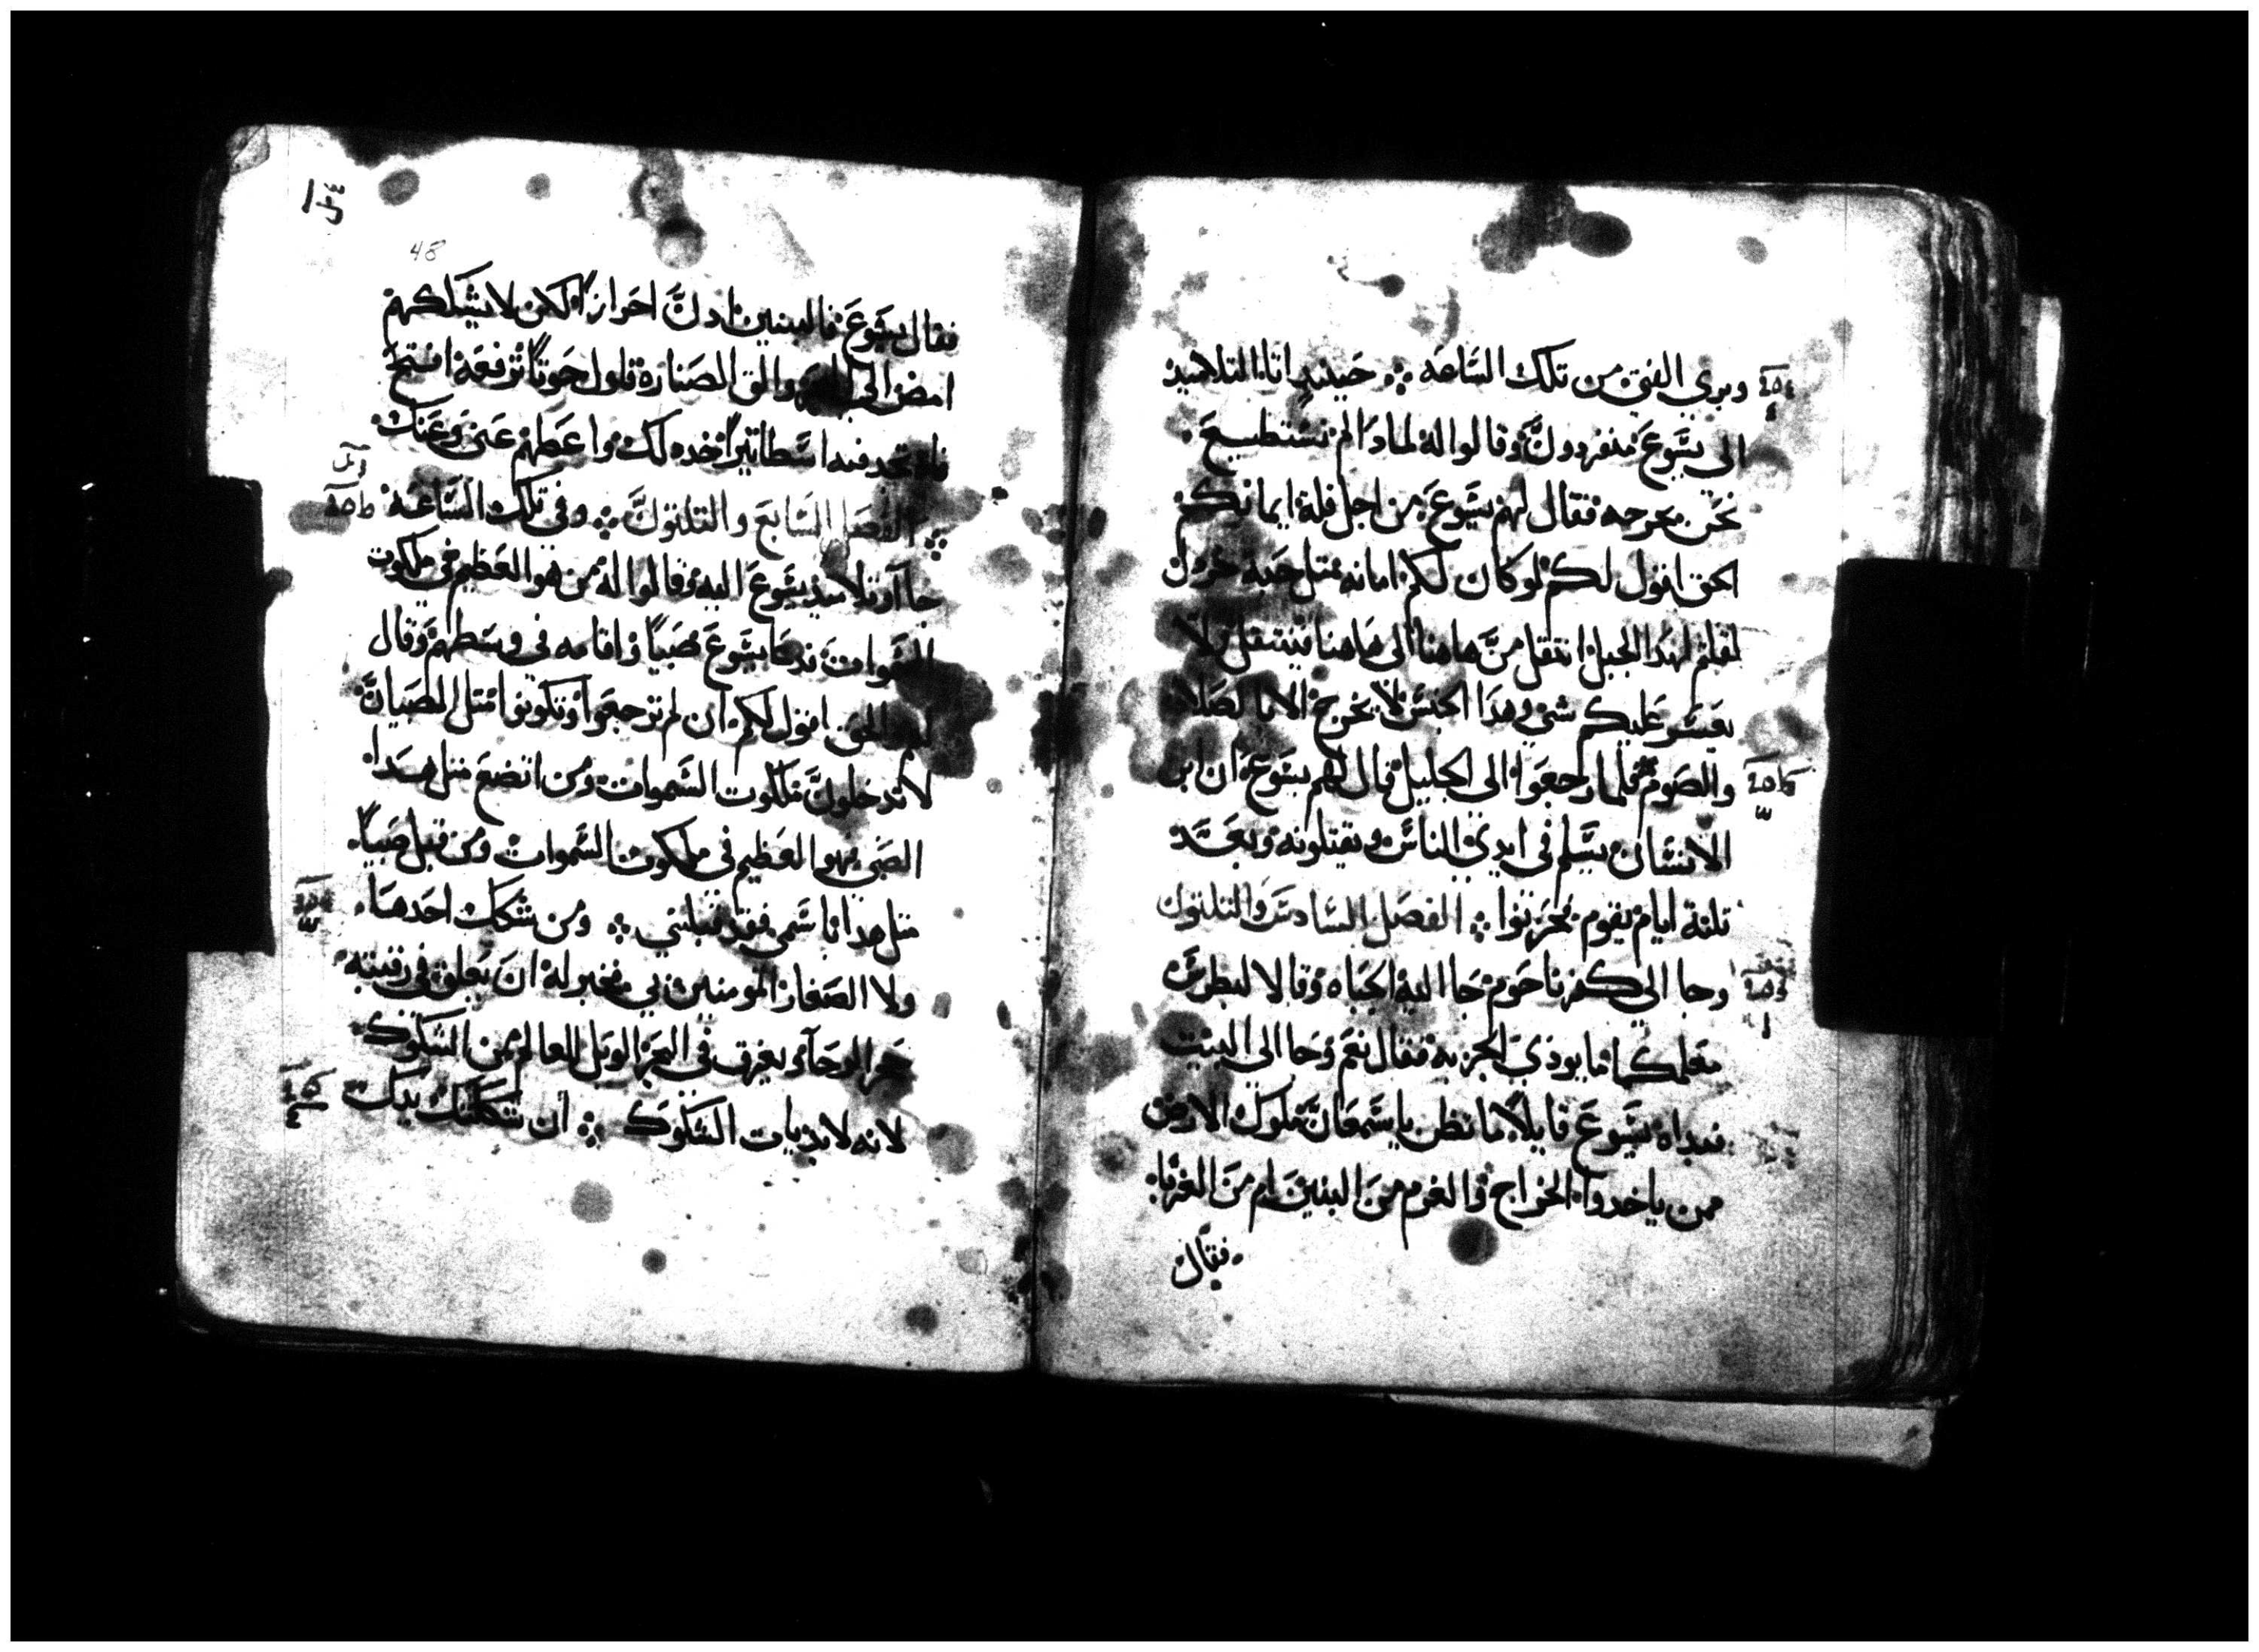 وبري الفتى من تلك الساعه ❖ حينيدٍ اتا التلاميد
الى يسوع منفردون وقالوا له لمادا لم نستطيع
نحن نخرجه فقال لهم يسوع من اجل قلة ايمانكم
الحق اقول لكم لو كان لكم امانه متل حبة خردل
لقلتم لهدا الجبل انتقل من هاهنا الى هاهنا فينتقل ولا
يعسر عليكم شي وهدا الجنس لا يخرج الا بالصلاه
والصوم فلما رجعوا الى الجليل قال لهم يسوع ان ابن
الانسان يسلم في ايدي الناس ويقتلونه وبعد
تلتة ايام يقوم فحزنوا ❖ الفصل السادس والتلتون
وجا الى كفرناحوم جا اليه الجباه وقالا لبطرس
معلمكما ما يودي الجزيه فقال نعم وجا الى البيت
فبداه يسوع قايلاً ما تظن يا سمعان ملوك الارض
ممن ياخدوا الخراج والغرم من البنين ام من الغربا
فقال
48
فقال يسوع فالبنين ادن احراراً لكن لا نشككهم
امض الى البحر والق الصناره فاول حوتاً ترفعه افتح
فاه تجد فيه اسطاتيراً خده لك واعطهم عني وعنك
❖ الفصل السابع والتلتون ❖ وفي تلك الساعه
جاآو تلاميد يسوع اليه وقالوا له من هو العظيم في ملكوت
السموات فدعا يسوع صبياً واقامه في وسطهم وقال
لهم الحق اقول لكم ان لم ترجعوا وتكونوا متل الصبيان
لا تدخلون ملكوت السموات ومن اتضع متل هدا
الصبي فهو العظيم في ملكوت السموات ومن قبل صبياً
متل هدا باسمي فقد قبلني ❖ ومن شكك احد ها
ولا الصغار المومنين بي فخير له ان يعلق في رقبته
حجر الرحآ ويغرق في البحر الويل للعالم من الشكوك
لانه لابد يات الشكوك ❖ ان شككتك يدك